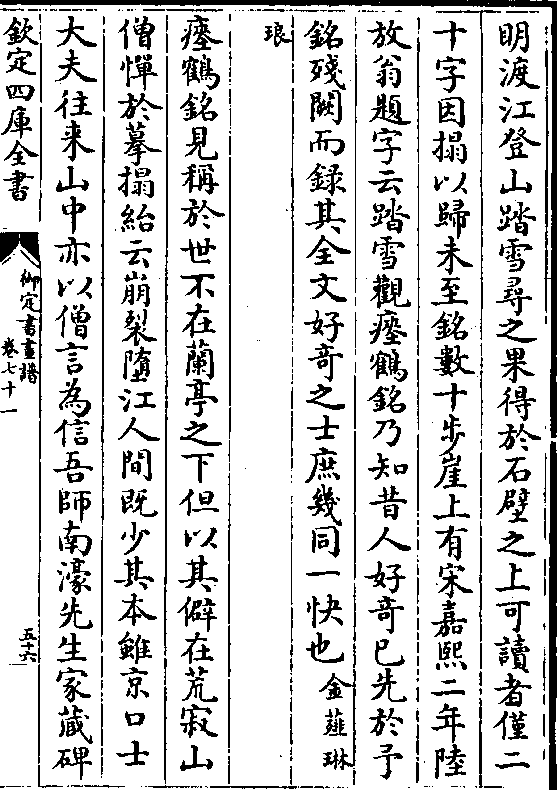 明渡江登山踏雪尋之果得於石壁之上可讀者僅二
十字因搨以歸未至銘數十步崖上有宋嘉熙二年陸
放翁題字云踏雪觀瘞鶴銘乃知昔人好奇已先於予
銘殘闕而録其全文好奇之士庶幾同一快也金薤琳
琅
瘞鶴銘見稱於世不在蘭亭之下但以其僻在荒寂山
僧憚於摹搨紿云崩裂墮江人間既少其本雖京口士
大夫往来山中亦以僧言為信吾師南濠先生家藏碑
欽定四庫全書
御定書畫譜
卷七十一
五十六